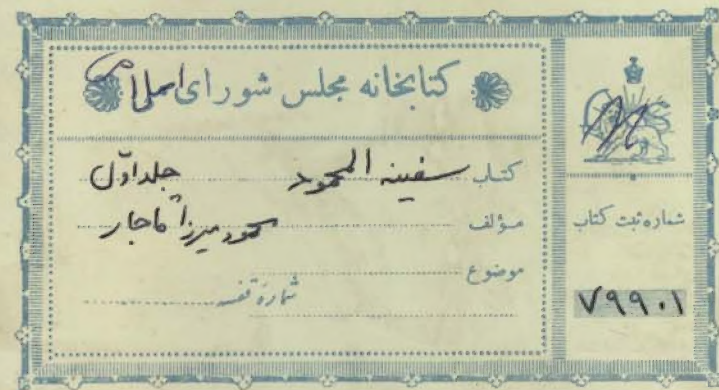 کتابخانه مجلس شورای اسلامی
کتاب سفینه المحمود جلد اوّل
مؤلف محمود میرزا قاجار
موضوع
شماره قفسه
شماره ثبت کتاب
۷۹۹۰۱